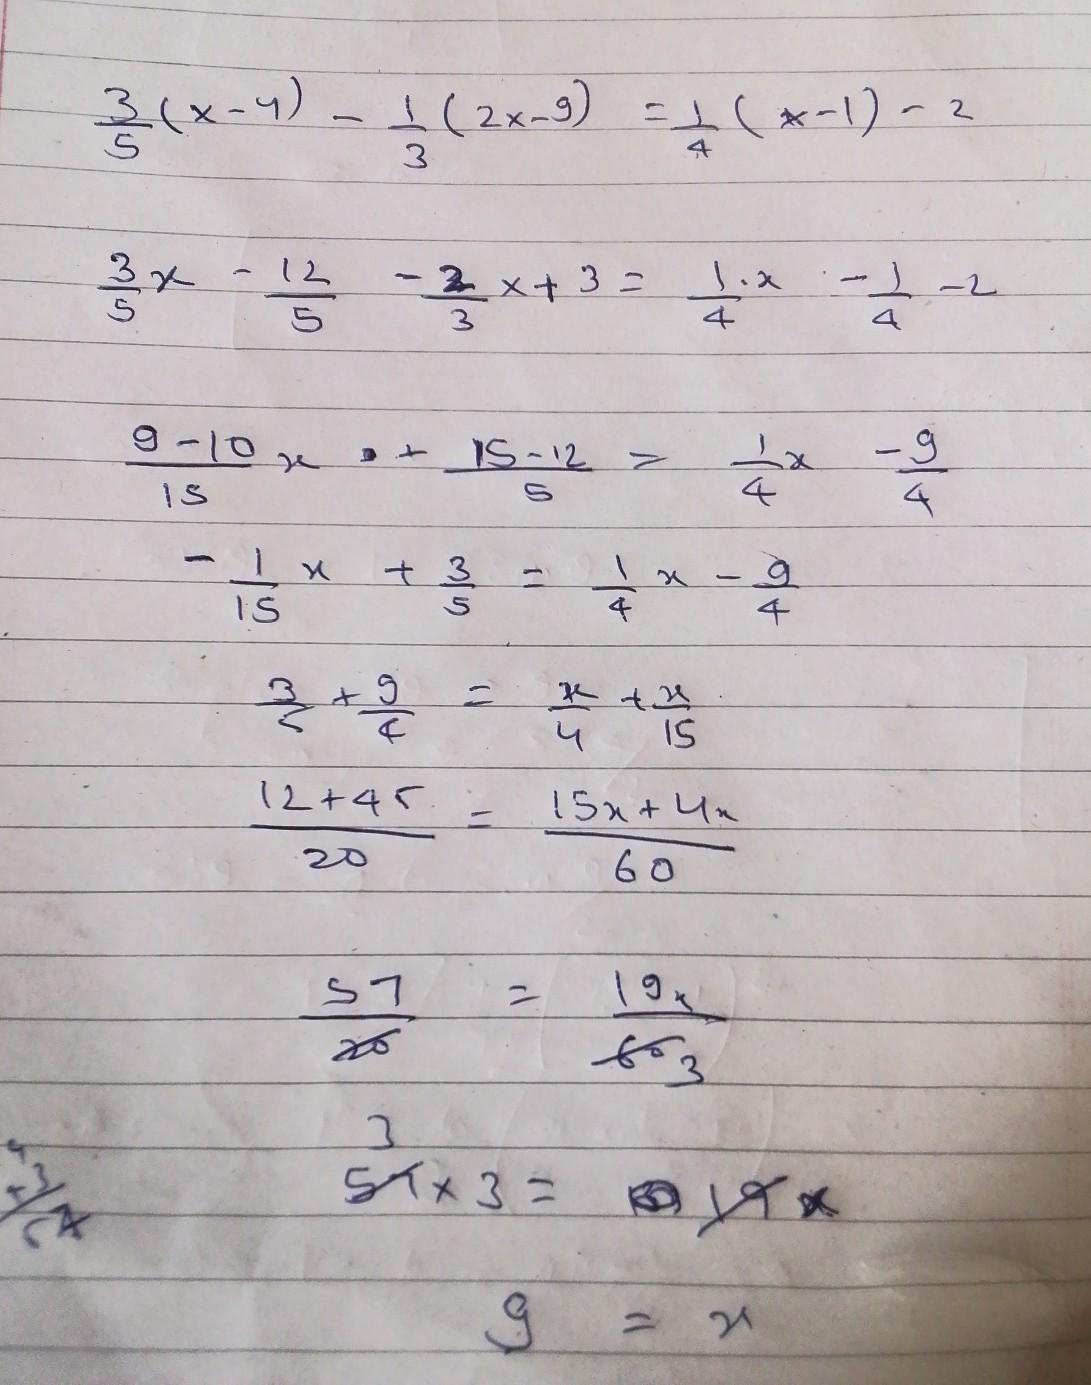 3/5 (x-4) - 1/3 (2x-9) = 1/4 (x-1) - 2
3/5 x - 12/5 - 2/3 x + 3 = 1/4 . x - 1/4 - 2
9-10/15 x + 15-12/5 = 1/4 x - 9/4
- 1/15 x + 3/5 = 1/4 x - 9/4
3/5 + 9/4 = x/4 + x/15
12+45/20 = 15x+4x/60
57/20 = 19x/60 3
3
57 x 3 = 19 x
9 = x